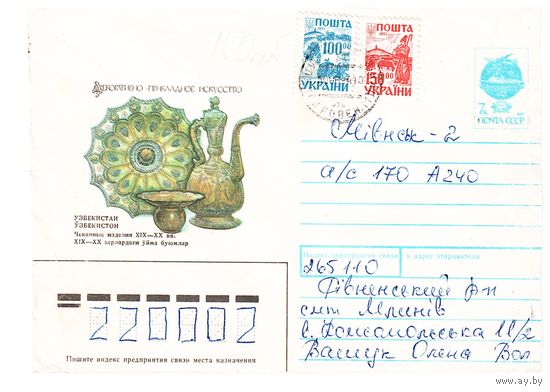 ПОШТА
100 00
УКРАЇНИ
ПОШТА
150 00
УКРАЇНИ
7к
ПОЧТА СССР
ДЕКОРАТИВНО-ПРИКЛАДНОЕ ИСКУССТВО
УЗБЕКИСТАН
ЎЗБЕКИСТОН
Чеканные изделия XIX—XX вв.
XIX—XX асрлардаги ўйма буюмлар
-2
а/с 170 А240
Индекс предприятия связи и адрес отправителя
265110
Рівненський р-н
смт Млинів
Комсомольська 11/2
Олена
220002
Пишите индекс предприятия связи места назначения
www.ay.by